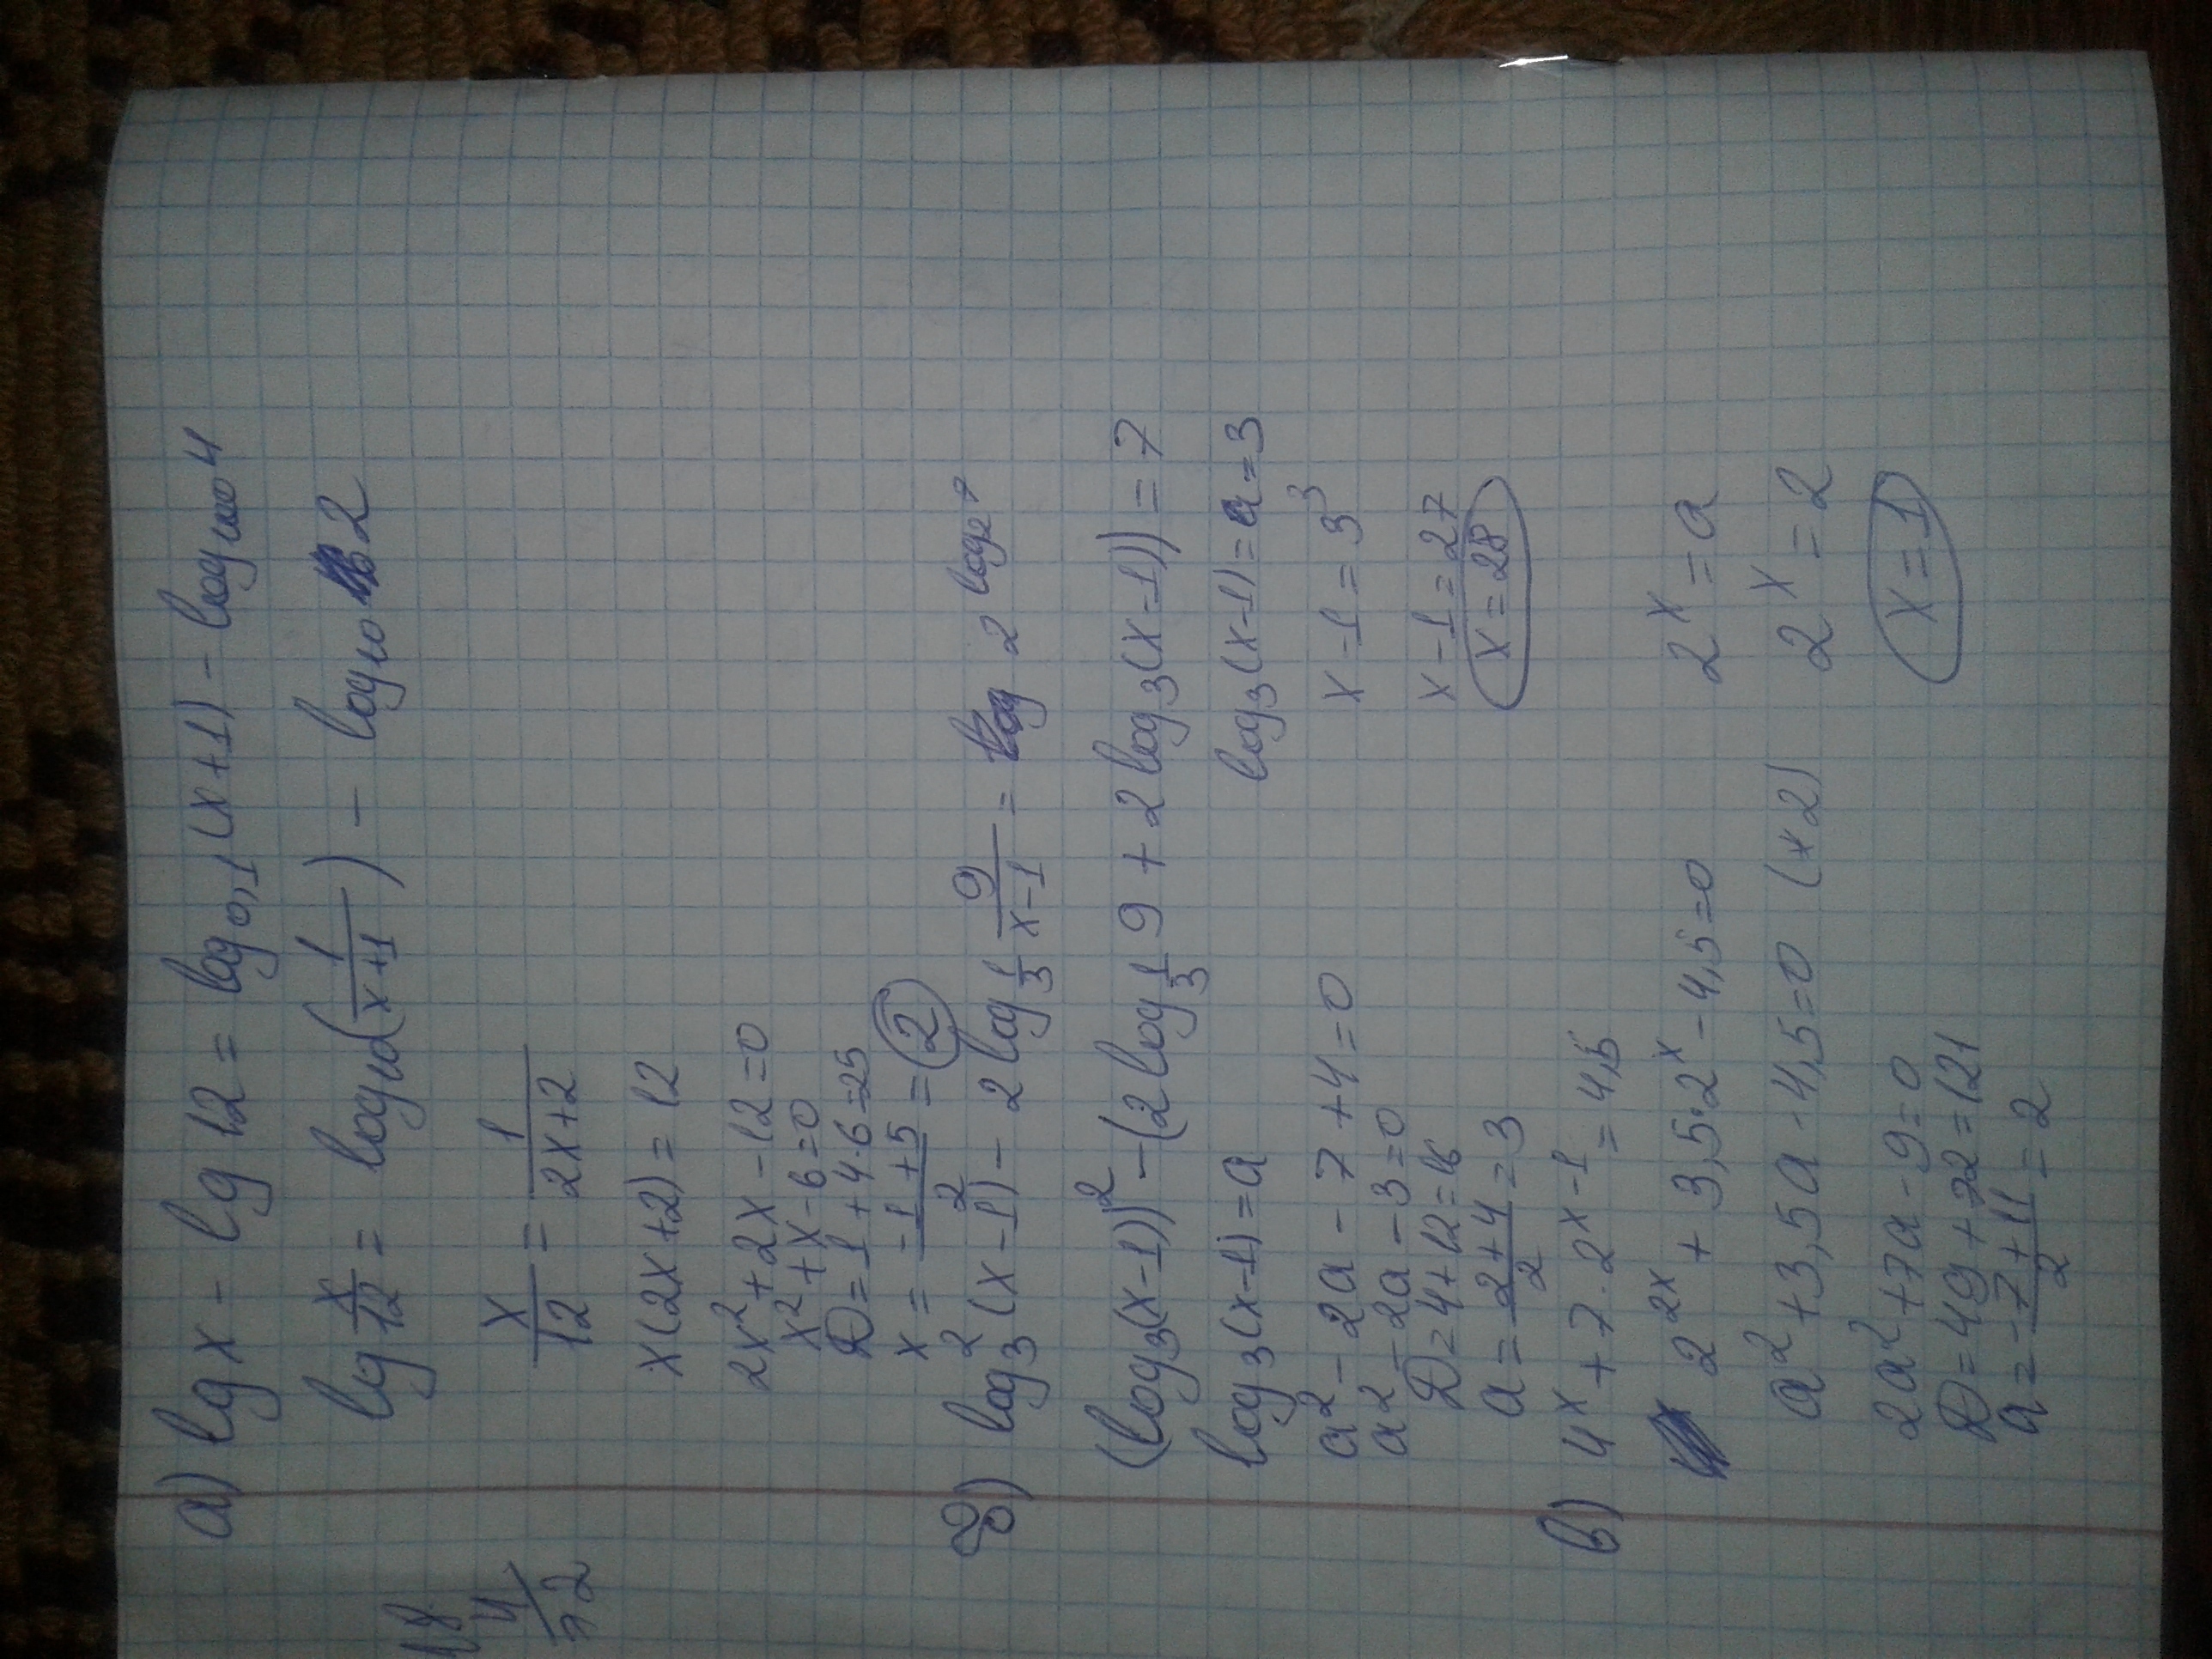 а) lg x - lg 12 = log₀,₁(x+1) - log₁₀₀ 4
lg x/12 = log₁₀(1/(x+1)) - log₁₀ 2
x/12 = 1/(2x+2)
x(2x+2) = 12
2x² + 2x - 12 = 0
x² + x - 6 = 0
D = 1 + 4·6 = 25
x = (-1+5)/2 = 2
б) log₃²(x-1)² - 2 log_{1/3} 9/(x-1) = 2^{log₂ 7}
(log₃(x-1))² - (2 log_{1/3} 9 + 2 log₃(x-1)) = 7
log₃(x-1) = a
a² - 2a - 7 + 4 = 0
a² - 2a - 3 = 0
D = 4 + 12 = 16
a = (2+4)/2 = 3
log₃(x-1) = a = 3
x - 1 = 3³
x - 1 = 27
x = 28
в) 4ˣ + 7 · 2ˣ⁻¹ = 4,5
2²ˣ + 3,5·2ˣ - 4,5 = 0
a² + 3,5a - 4,5 = 0 (x 2)
2a² + 7a - 9 = 0
D = 49 + 72 = 121
a = (-7+11)/2 = 2
2ˣ = a
2ˣ = 2
x = 1